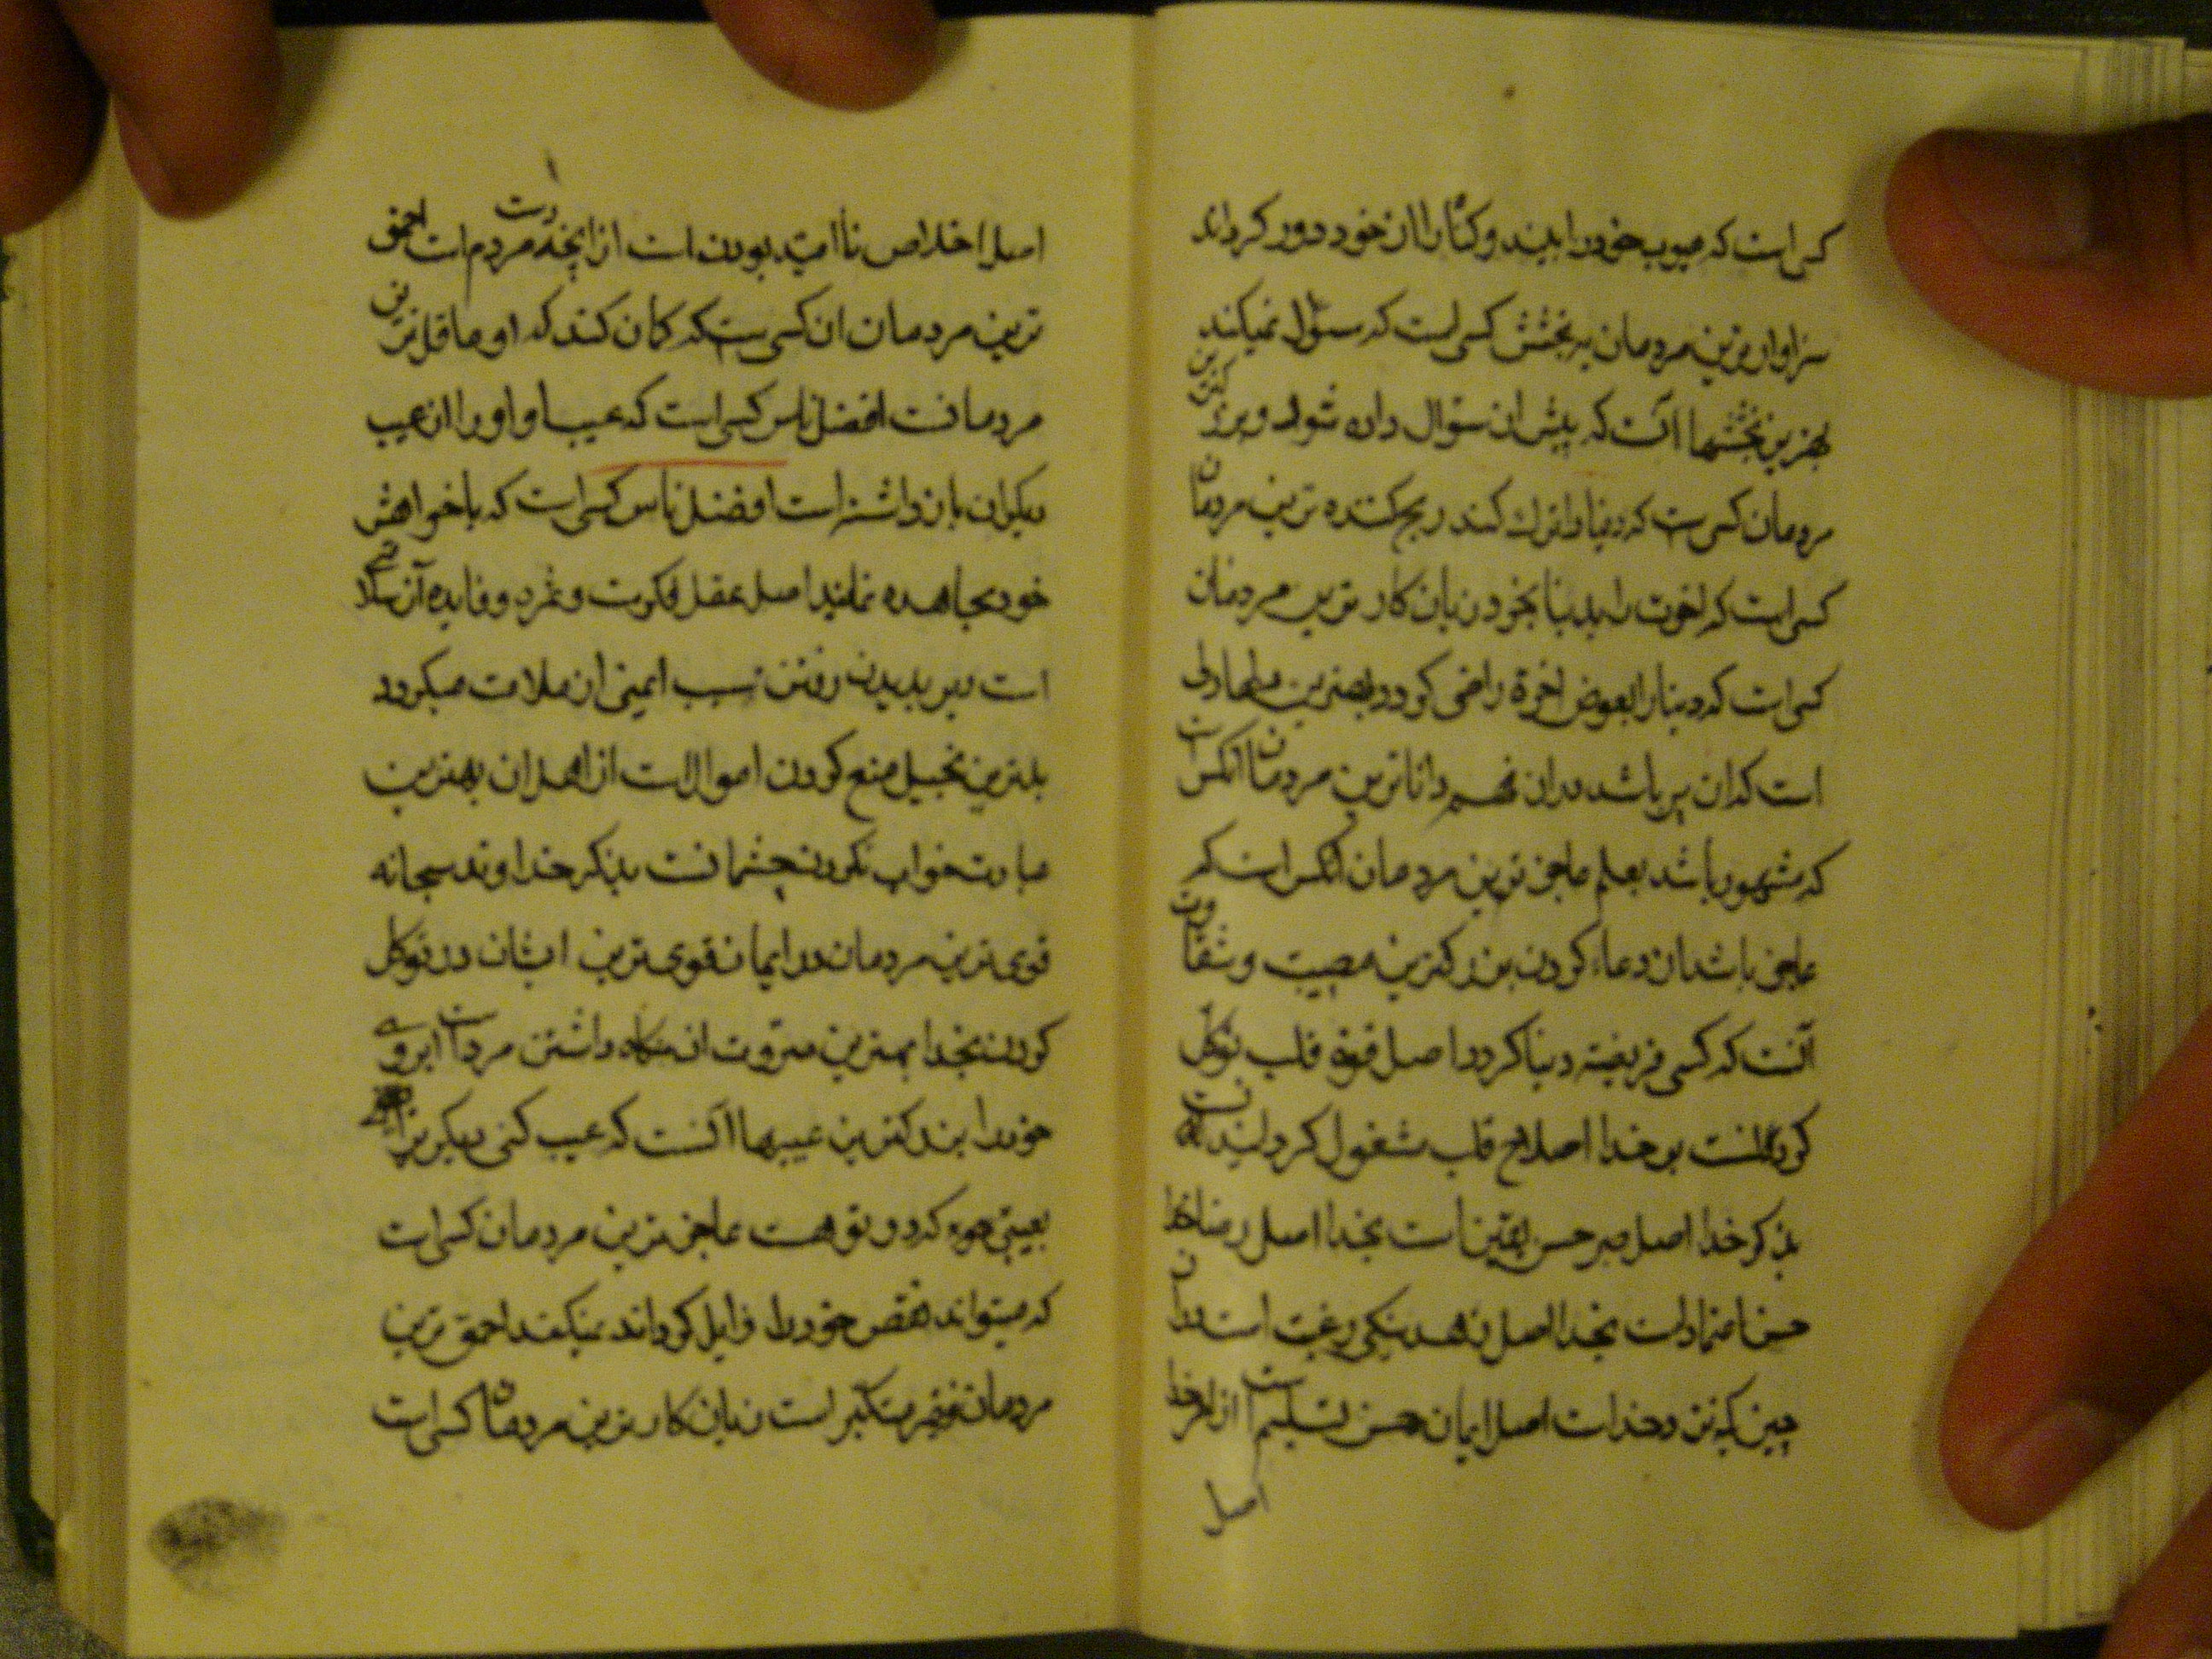 کسی است که عیوب خود را ببیند و کناه را از خود دور کرداند
سزاوار ترین مردمان به بخشش کسی است که سئوال نمیکند
بهترین بخششها آنست که پیش از سئوال داده شود و بزرکترین
مردمان کسی ست که دنیا را ترک کند ربح کننده ترین مردمان
کسی است که اخرت را بدنیا بخرد زیان کار ترین مردمان
کسی است که دنیا را بعوض اخرة راضی کردد بهترین دلها دلی
است که ان پر باشد دران فهم داناترین مردمان آنکس است
که مشهور باشد بعلم عاجز ترین مردمان آنکس است که
عاجز باشد از دعاء کردن بزرکترین مصیبت و شقاوت
آنست که کسی فریفته دنیا کردد اصل قوة قلب توکل
کردنست بر خدا اصلاح قلب مشغول کردانیدنست
بذکر خدا اصل صبر حسن یقین است بخدا اصل رضا
حسن اعتماد است بخدا اصل زهد نیکی رغبت است دران
چیزیکه نزد خدا است اصل ایمان حسن تسلیم است از امر خدا
اصل
اصل اخلاص ناامید بودن است از انچه در دست مردم است احمق
ترین مردمان ان کسی ست که کمان کند که او عاقل ترین
مردمانست افضل ناس کسی است که عیب او او را از عیب
دیکران باز داشته است افضل ناس کسی است که با خواهش
خود مجاهده نماید اصل عقل فکرت و ثمره و فایده آن سلامتی
است
بدترین بخیل منع کردن اموال است از اهل ان بهترین
عبادت خواب نکردن چشمانست بذکر خداوند سبحانه
قوی ترین مردمان در ایمان قوی ترین ایشان در توکل
کردن بخدا بهترین مروت ان نکاه داشتن مرد است ابروی
خود را بزرکترین عیبها آنست که عیب کنی دیکریرا
بعیبی که در تو هست عاجز ترین مردمان کسی است
که میتواند نقص خود را زایل کرداند نمیکند احمق ترین
مردمان فقیر متکبر است زیان کار ترین مردمان کسی است